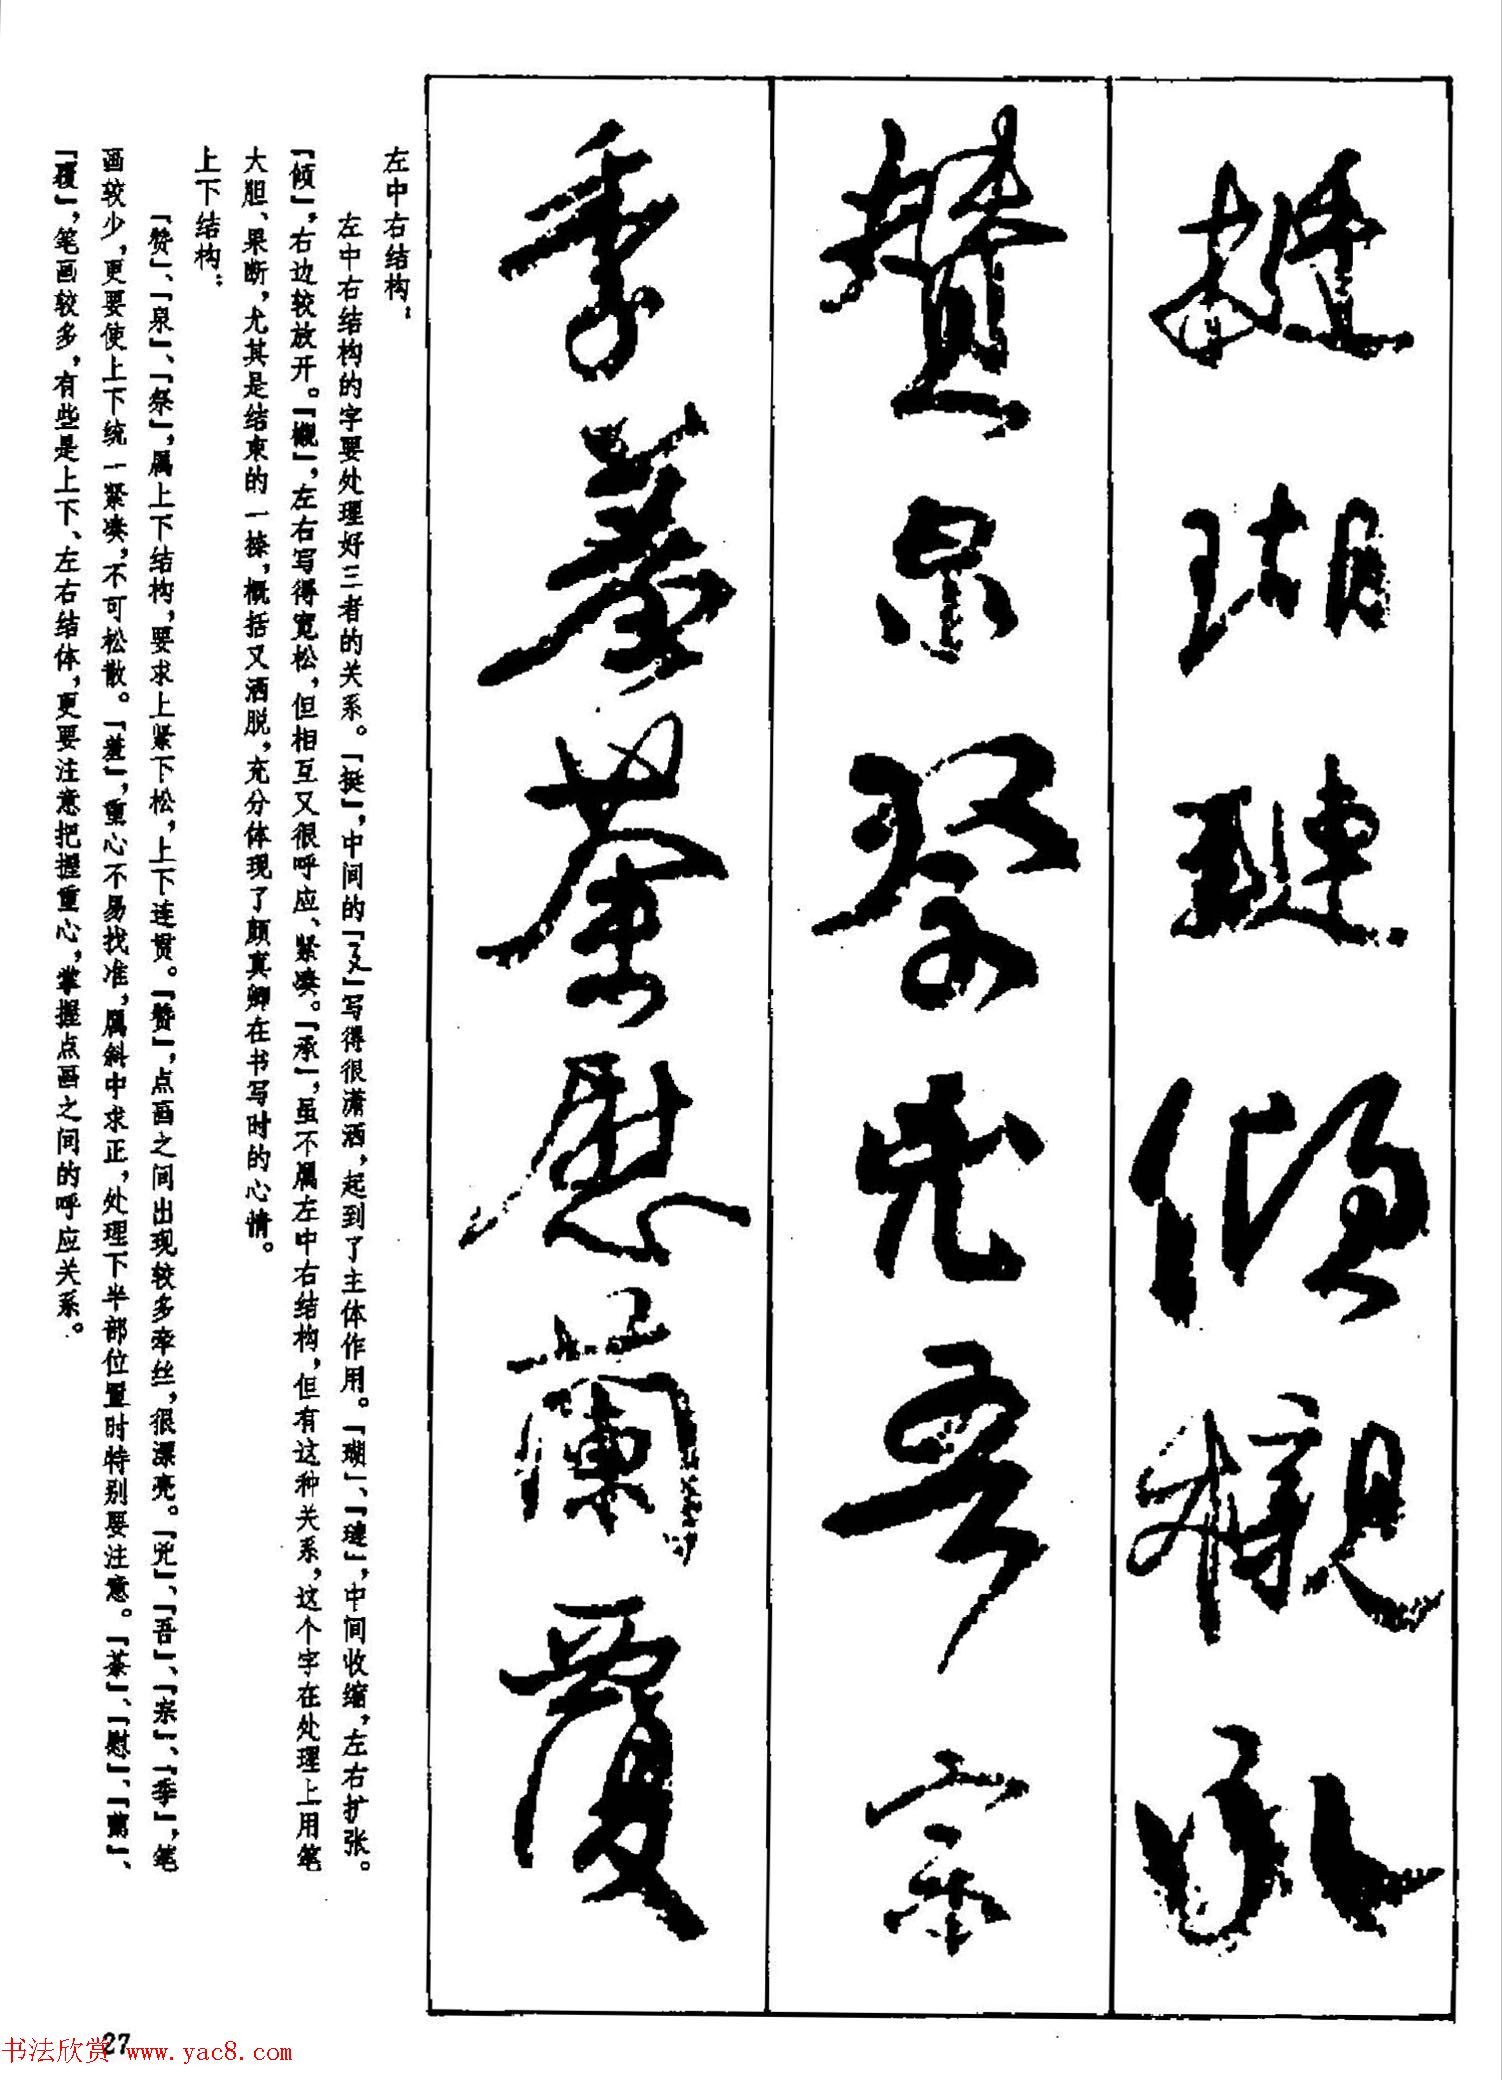 挺瑚琏倾榇承
赞泉祭兕吾宗
季羞荼慰蘭覆
左中右结构：
左中右结构的字要处理好三者的关系。「挺」，中间的「㇋」写得很潇洒，起到了主体作用。「瑚」、「琏」，中间收缩，左右扩张。
「倾」，右边较放开。「榇」，左右写得宽松，但相互又很呼应、紧凑。「承」，虽不属左中右结构，但有这种关系，这个字在处理上用笔
大胆、果断，尤其是结束的一捺，概括又洒脱，充分体现了颜真卿在书写时的心情。
上下结构：
「赞」、「泉」、「祭」，属上下结构，要求上紧下松，上下连贯。「赞」，点画之间出现较多牵丝，很漂亮。「兕」、「吾」、「宗」、「季」，笔
画较少，更要使上下统一紧凑，不可松散。「羞」，重心不易找准，属斜中求正，处理下半部位置时特别要注意。「荼」、「慰」、「蘭」、
「覆」，笔画较多，有些是上下、左右结体，更要注意把握重心，掌握点画之间的呼应关系。
27
书法欣赏 www.yac8.com